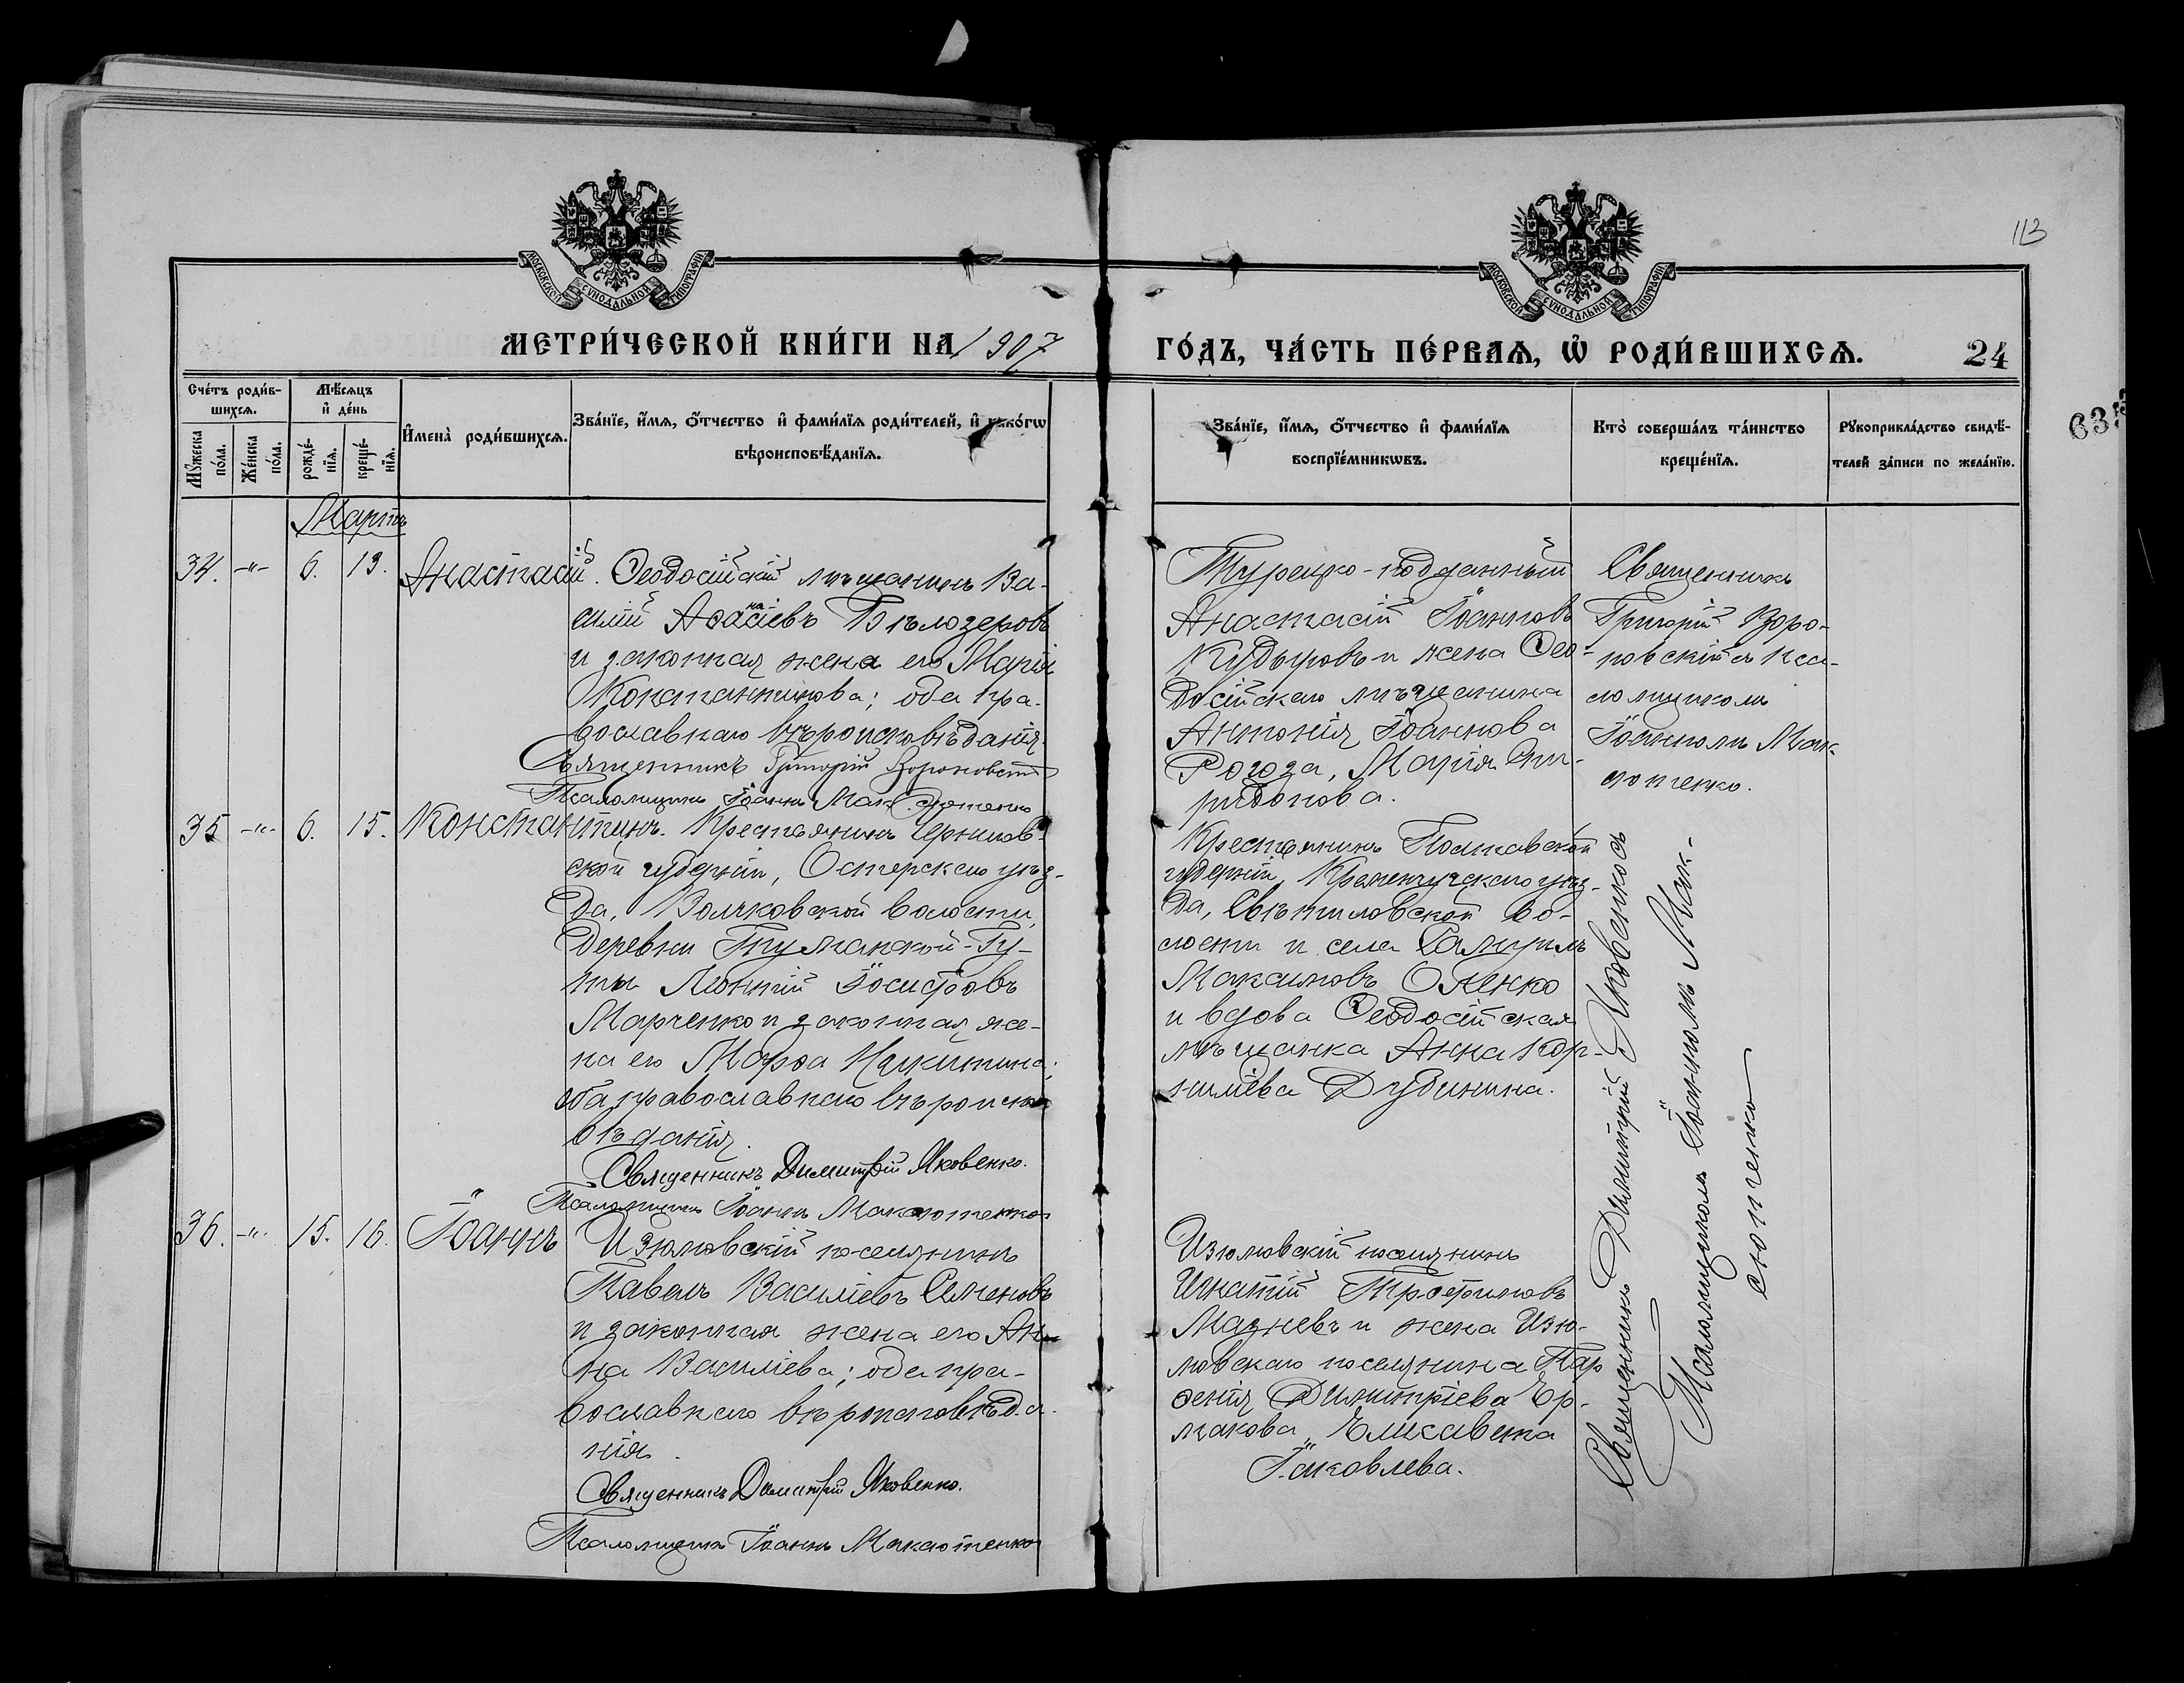 113
МОСКОВСКОЙ СѴНОДАЛЬНОЙ ТИПОГРАФІИ
МОСКОВСКОЙ СѴНОДАЛЬНОЙ ТИПОГРАФІИ
МЕТРИ́ЧЕСКОЙ КНИ́ГИ НА 1907
ГО́ДЪ, ЧА́СТЬ ПЕ́РВАѦ, Ѡ҆ РОДИ́ВШИХСѦ.
24
635
Сче́тъ роди́в-
шихсѧ.
Мꙋ́жеска
по́ла.
Же́нска
по́ла.
Мѣ́сѧцъ
и҆ де́нь
рожде́-
нїѧ.
креще́-
нїѧ.
И҆мена̀ роди́вшихсѧ.
Зва́нїе, и҆́мѧ, ѻ҆́тчество и҆ фами́лїѧ роди́телей, и҆ како́гѡ
вѣроисповѣ́данїѧ.
Зва́нїе, и҆́мѧ, ѻ҆́тчество и҆ фами́лїѧ
воспрїе́мникѡвъ.
Кто̀ соверша́лъ та́инство
креще́нїѧ.
Рꙋкоприкла́дство свидѣ́-
телей за́писи по жела́нїю.
Мартъ
34. -"- 6. 13. Анастасій.
Ѳеодосійскій мѣщанинъ Ва-
силій Аѳанасіевъ Бѣлозеровъ
и законная жена его Марія
Константинова; оба пра-
вославнаго вѣроисповѣданія.
Священникъ Григорій
Псаломщикъ Іоаннъ Максютенко
Турецко-подданный
Анастасій Іоанновъ
Кудыровъ и жена Ѳео-
досійскаго мѣщанина
Антонія Іоаннова
Рогоза, Марія Спи-
ридонова.
Священникъ
Григорій
съ пса-
ломщикомъ
Іоанномъ Мак-
сютенко.
35 -"- 6. 15. Константинъ.
Крестьянинъ Чернигов-
ской губерніи, Остерскаго уѣз-
да, Волчковской волости,
деревни Туманской-Гу-
ты Леонтій Іосифовъ
Марченко и законная же-
на его Марѳа Никитина;
оба православнаго вѣроиспо-
вѣданія.
Священникъ Димитрій Яковенко.
Псаломщикъ Іоаннъ Максютенко
Крестьянинъ Полтавской
губерніи, Кременчугскаго уѣз-
да, волости
и села
Максимовъ Оленко
и вдова Ѳеодосійская
мѣщанка Анна Кор-
ниліева Дубинина.
Священникъ Димитрій Яковенко съ
Псаломщикомъ Іоанномъ Мак-
сютенко
36. -"- 15. 16. Іоаннъ
Изюмовскій поселянинъ
Павелъ Василіевъ Семеновъ
и законная жена его Ан-
на Василіева; оба пра-
вославнаго вѣроисповѣда-
нія.
Священникъ Димитрій Яковенко.
Псаломщикъ Іоаннъ Максютенко
Изюмовскій поселянинъ
Игнатій Трофимовъ
Мазневъ и жена Изю-
мовскаго поселянина Пар-
ѳенія Димитріева Ер-
макова, Елисавета
Іаковлева.